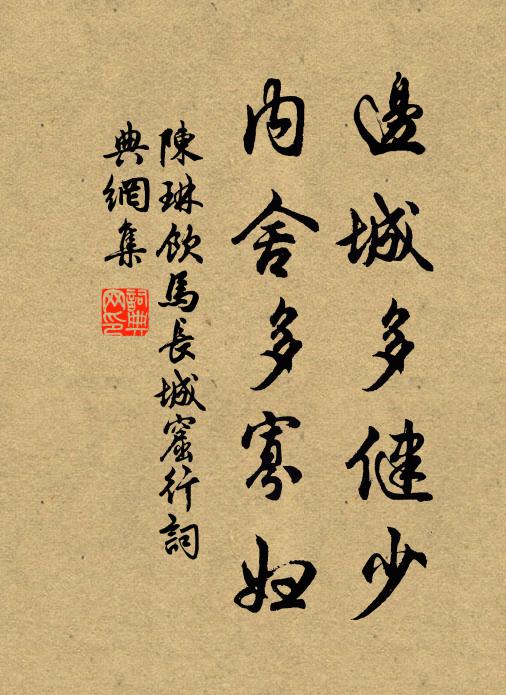 邊城多健少
內舍多寡婦
陳琳飲馬長城窟行詞
典網集
詞典網印